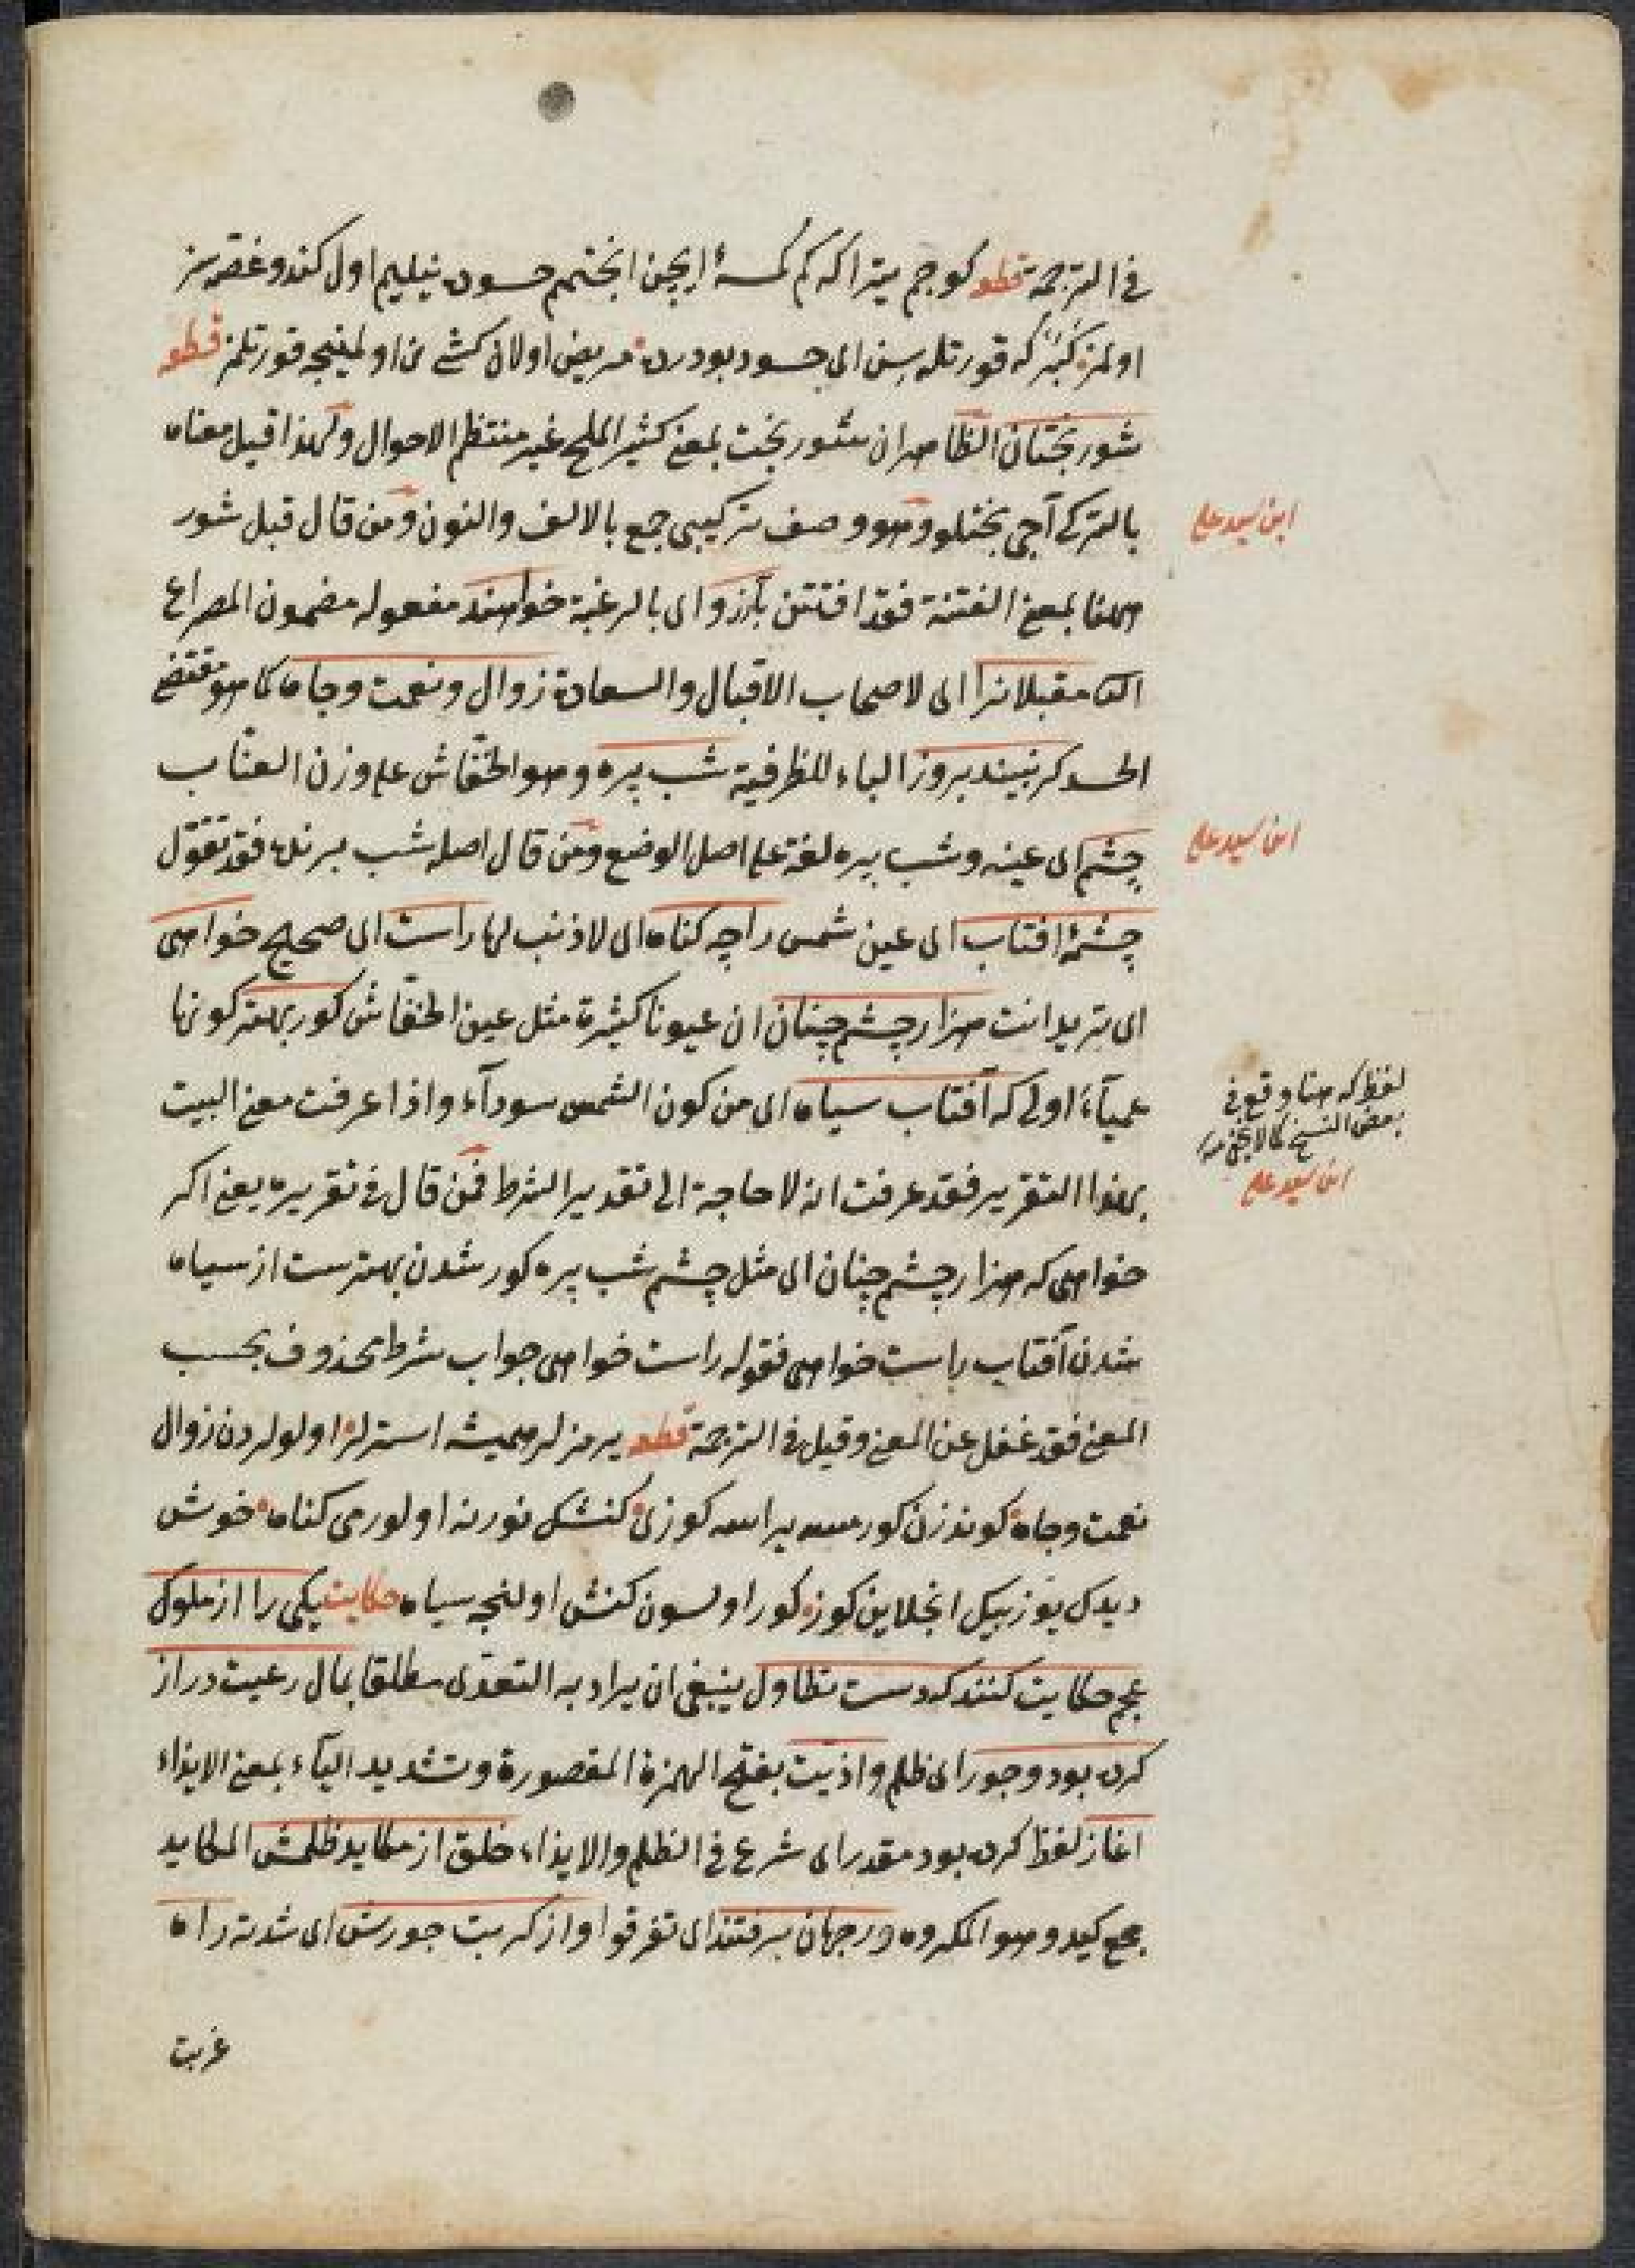 في الترجمة قطعه كوجم يتر اكه كم كسۀ ايچن انجنم حسوده نيليم اول كندو غصه سز
اولمز كبر كه قورتله سن اى حسود بودرده مريض اولان كشى نن اولمينجه قورتلمز قطعه
شور بختان الظاهر ان شور بخت بمعنى كثير الملح غير منتظم الاحوال ولهذا قيل معناه
بالتركى آجى بختلو وهو وصف تركيبى جمع بالالف والنون ومن قال قبل شور
ههنا بمعنى الفتنة فقد افتتن بآرزو اى بالرغبة خواهند مفعوله مضمون المصراع
الثا مقبلانرا اى لاصحاب الاقبال والسعادة زوال ونعمت وجاه كما هو مقتضى
الحسد كر نبيند بروز الباء للظرفية شب پره وهو الخفّاش على وزن العنّاب
چشم اى عينه وشب پره لغة على اصل الوضع ومن قال اصله شب پرنده فقد تقوّل
چشمۀ افتاب اى عين شمس را چه كناه اى لا ذنب لها راست اى صحيح خواهى
اى تريد انت هزار چشم چنان ان عيونا كثيرة مثل عين الخفّاش كور بهتر كونها
عمياء اولى كه آفتاب سياه اى من كون الشمس سودآء واذا عرفت معنى البيت
بهذا التقرير فقد عرفت انه لا حاجة الى تقدير الشرط فمن قال فى تقريره يعنى اكر
خواهى كه هزار چشم چنان اى مثل چشم شب پره كور شدن بهترست از سياه
شدن آفتاب راست خواهى فقوله راست خواهى جواب شرط محذوف بحسب
المعنى فقد غفل عن المعنى وقيل فى الترجمة قطعه يرمزلر هميشه استرلر اولولردن زوال
نعمت وجاه كوندزن كورمسه يراسه كوزى كنشك نورنه اولورمى كناه خوش
ديدك يوز بيك انجلاين كوز كور اولسون كنش اولنجه سياه حكايت يكى را از ملوك
عجم حكايت كنند كه دست تطاول ينبغى ان يراد به التعدّى مطلقا بمال رعيت دراز
كرده بود وجور اى ظلم واذيّت بفتح الهمزة المقصورة وتشديد اليآء بمعنى الايذاء
اغاز لفظ كرده بود مقدر اى شرع فى الظلم والايذاء خلق از مكايد ظلمش المكايد
جمع كيد وهو المكروه در جهان برفتند اى تفرقوا واز كربت جورش اى شدته راه
غربت
ابن سيد على
ابن سيد على
لفظ كه هنا وقع فى
بعض النسخ كما لا يخفى منه
ابن سيد على